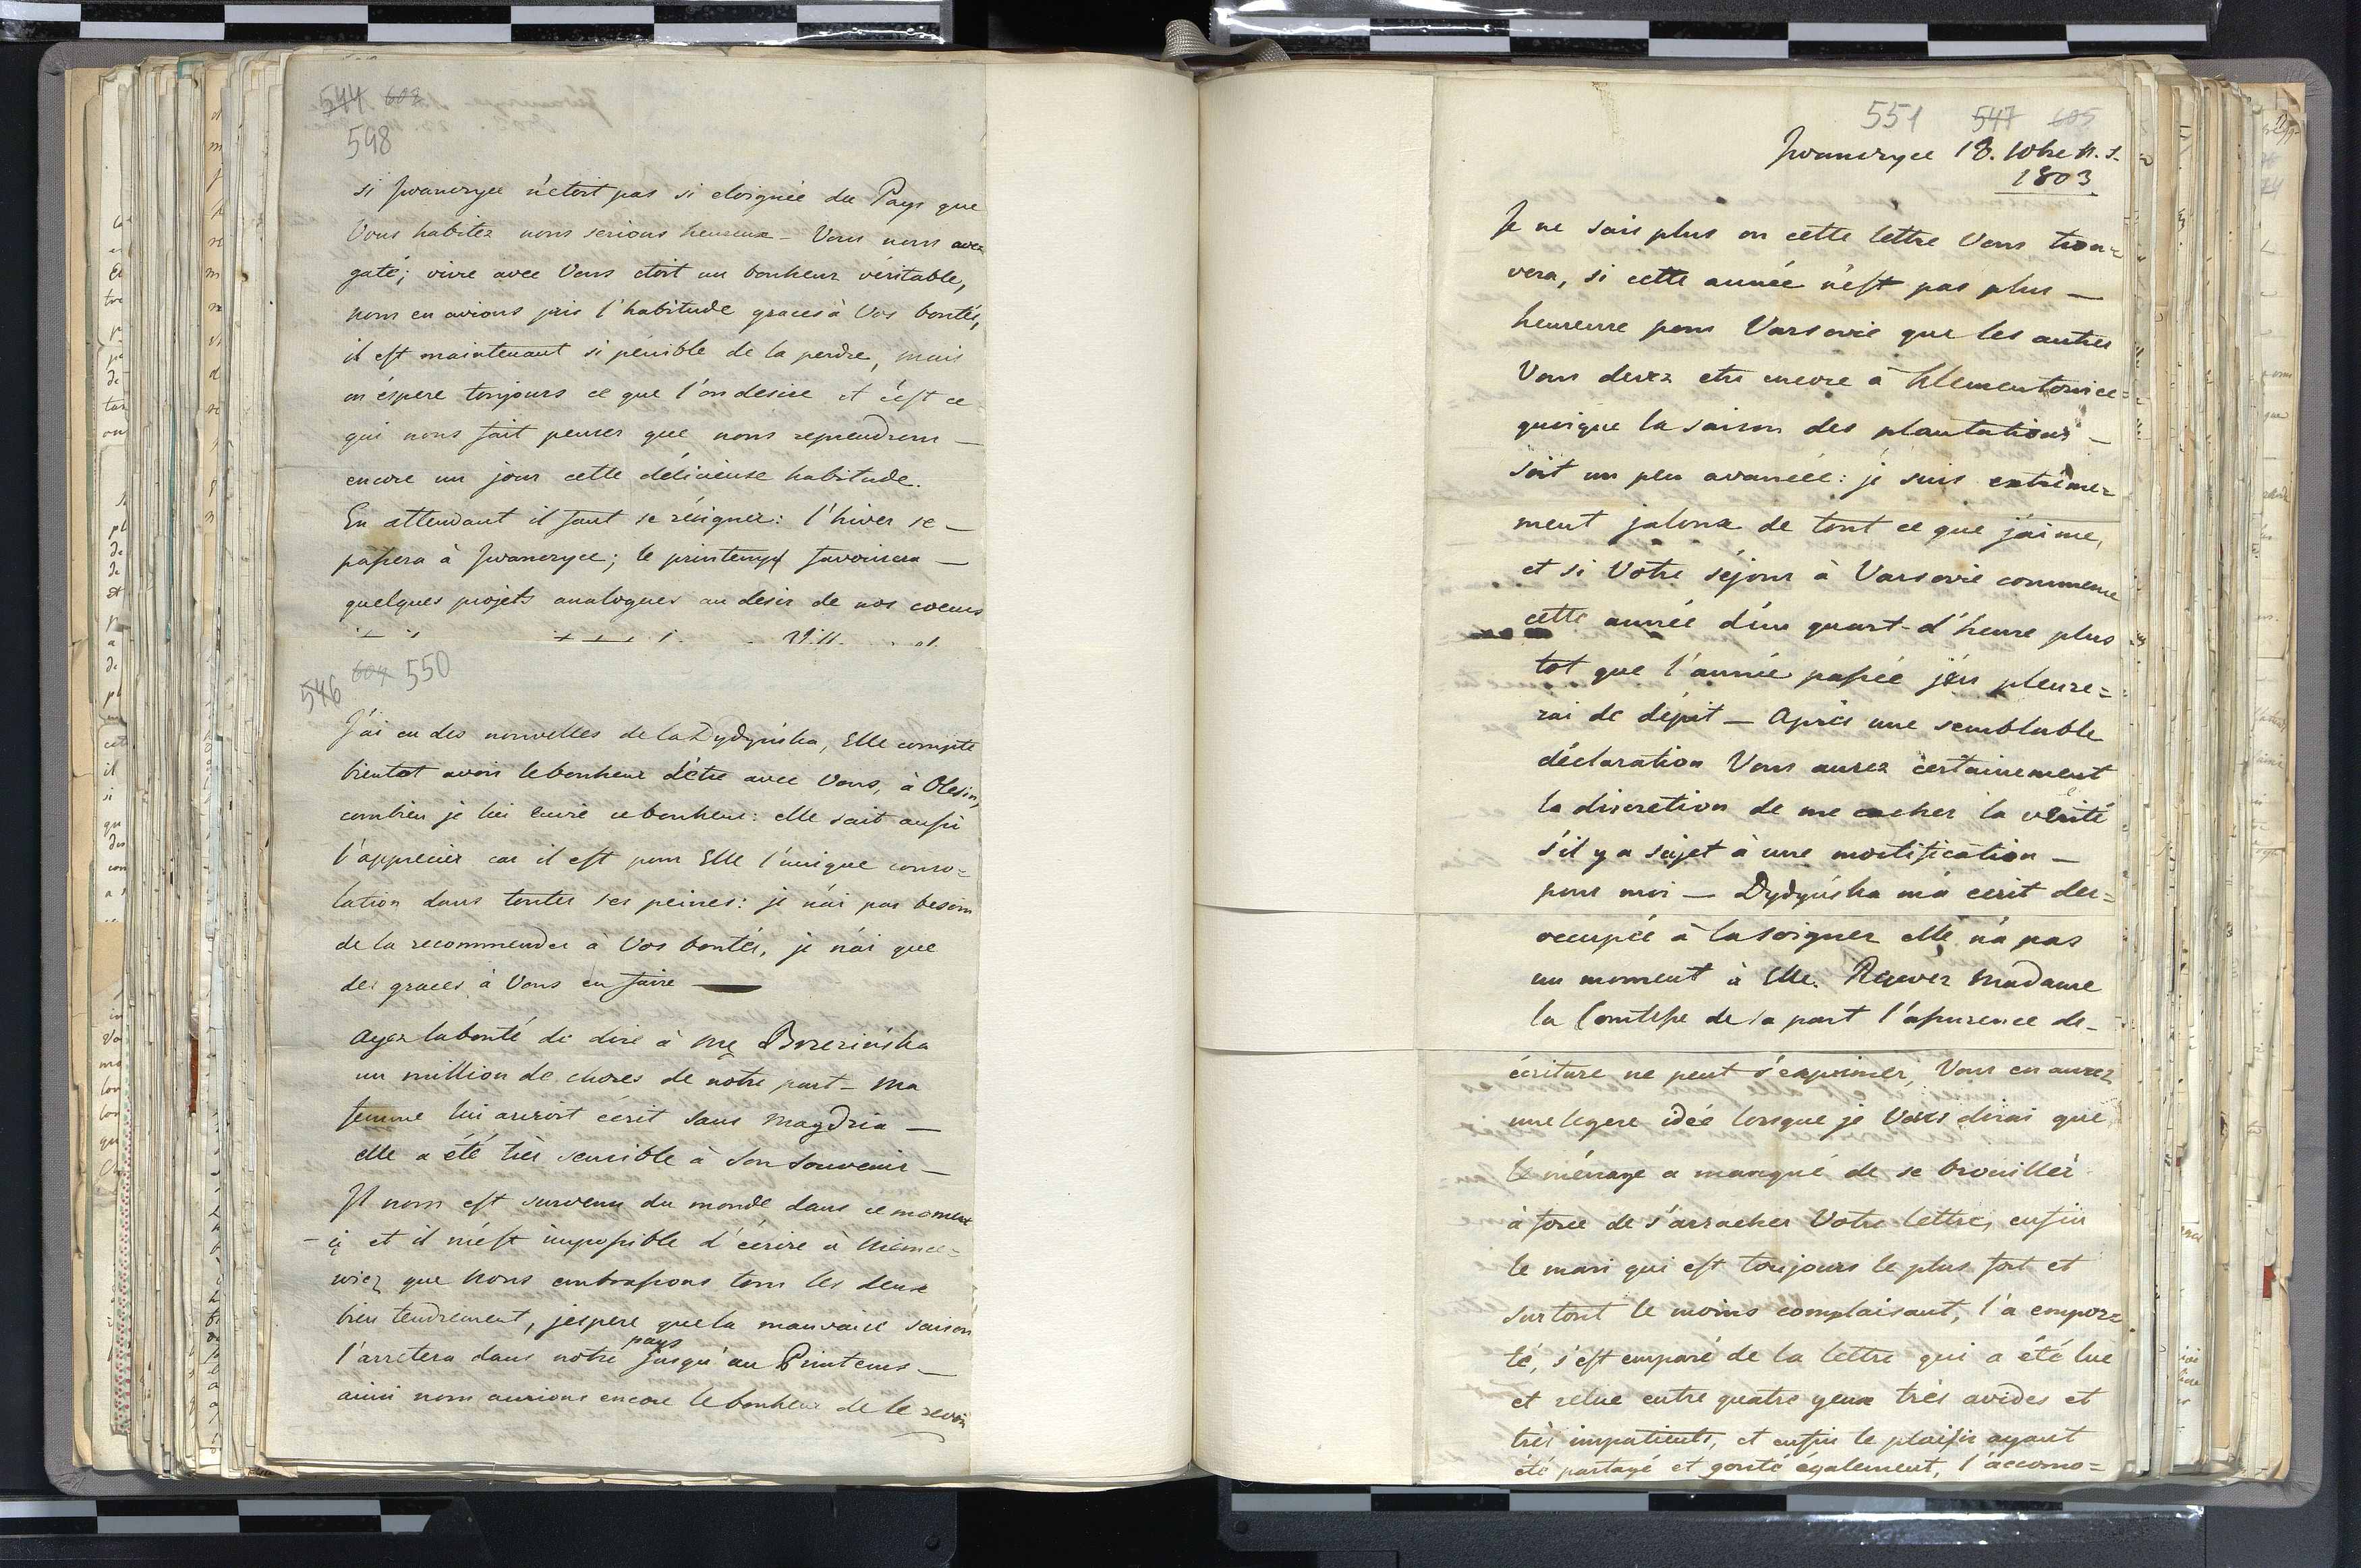 544 602
598
si Jwanczyce n'etoit pas si eloignée du Pays que
Vous habitez nous serions heureux – Vous nous avez
gaté; vivre avec Vous etoit un bonheur véritable,
nous en avions pris l'habitude graces à Vos bontés,
il est maintenant si pénible de la perdre, mais
on éspere toujours ce que l'on desire et c'est ce
qui nous fait penser que nous reprendrons –
encore un jour cette délicieuse habitude.
En attendant il faut se résigner: l'hiver se –
passera à Jwanczyce; le printemps favorisera –
quelques projets analogues au desir de nos coeurs
546 604 550
J'ai eu des nouvelles de la Dydyńska, Elle compte
bientot avoir le bonheur d'être avec Vous, à Olesin,
combien je lui envie ce bonheur: elle sait aussi
l'apprecier car il est pour Elle l'unique conso=
lation dans toutes ses peines: je n'ai pas besoin
de la recommender à Vos bontés, je n'ai que
des graces à Vous en faire —
Ayez la bonté de dire à Me Brzezińska
un million de choses de nôtre part – Ma
femme lui auroit écrit sans Magdzia –
elle a été très sensible à son souvenir –
Il nous est survenu du monde dans ce moment
– çi et il m'est impossible d'écrire à Niemce=
wicz que nous embrassons tous les deux
bien tendrement, j'espere que la mauvaise saison
l'arretera dans notre pays jusqu'au Printems –
ainsi nous aurions encore le bonheur de le revoir
551 547 605
Jwanczyce 18. Xbre n. s.
1803
Je ne sais plus ou cette lettre Vous trou=
vera, si cette année n'est pas plus –
heureuse pour Varsovie que les autres
Vous devez etre encore à Klementowice
quoique la saison des plantations –
soit un peu avancée: je suis extrême=
ment jaloux de tout ce que j'aime,
et si Votre séjour à Varsovie commence
cette année d'un quart-d'heure plus
tot que l'année passée j'en pleure=
rai de dépit – Après une semblable
déclaration Vous aurez certainement
la discretion de me cacher la vérité
s'il y a sujet à une mortification –
pour moi – Dydyńska m'a ecrit der=
occupée à la soigner elle n'a pas
un moment à Elle. Recevez Madame
la Comtesse de sa part l'assurence de –
écriture ne peut s'exprimer, Vous en aurez
une legere idée lorsque je Vous dirai que
le ménage a manqué de se brouiller
à force de s'arracher Votre lettre, enfin
le mari qui est toujours le plus fort et
surtout le moins complaisant, l'a empor=
té, s'est emparé de la lettre qui a été lue
et relue entre quatre yeux très avides et
très impatients, et enfin le plaisir ayant
été partagé et gouté également, l'accomo=